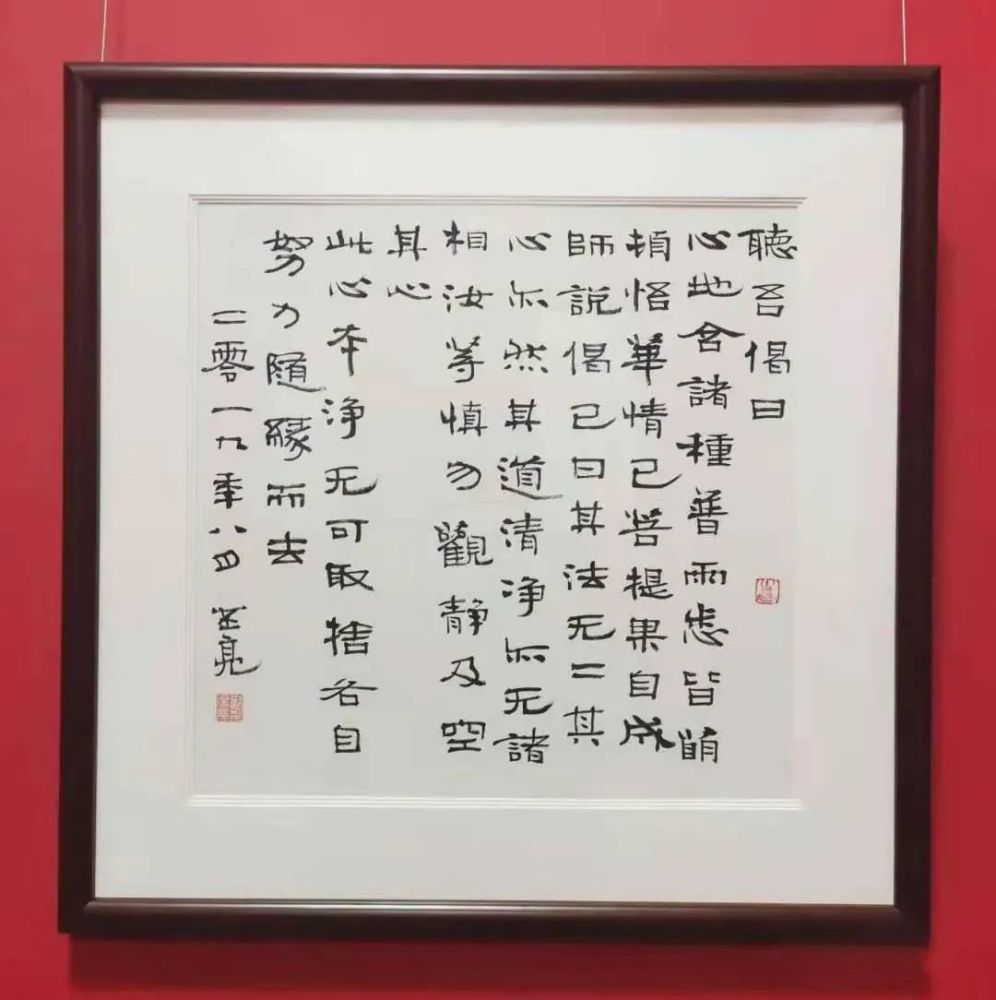 聽吾偈曰
心地含諸種普雨悉皆萌
頓悟華情已菩提果自成
師說偈已曰其法无二其
心亦然其道清净亦无諸
相汝等慎勿觀静及空
其心
此心本净无可取捨各自
努力随緣而去
二零一九年八月 亮